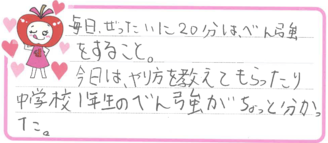 毎日、ぜったいに20分は、べん強
をすること。
今日は、やり方を教えてもらったり
中学校1年生のべん強がちょっと分かっ
た。